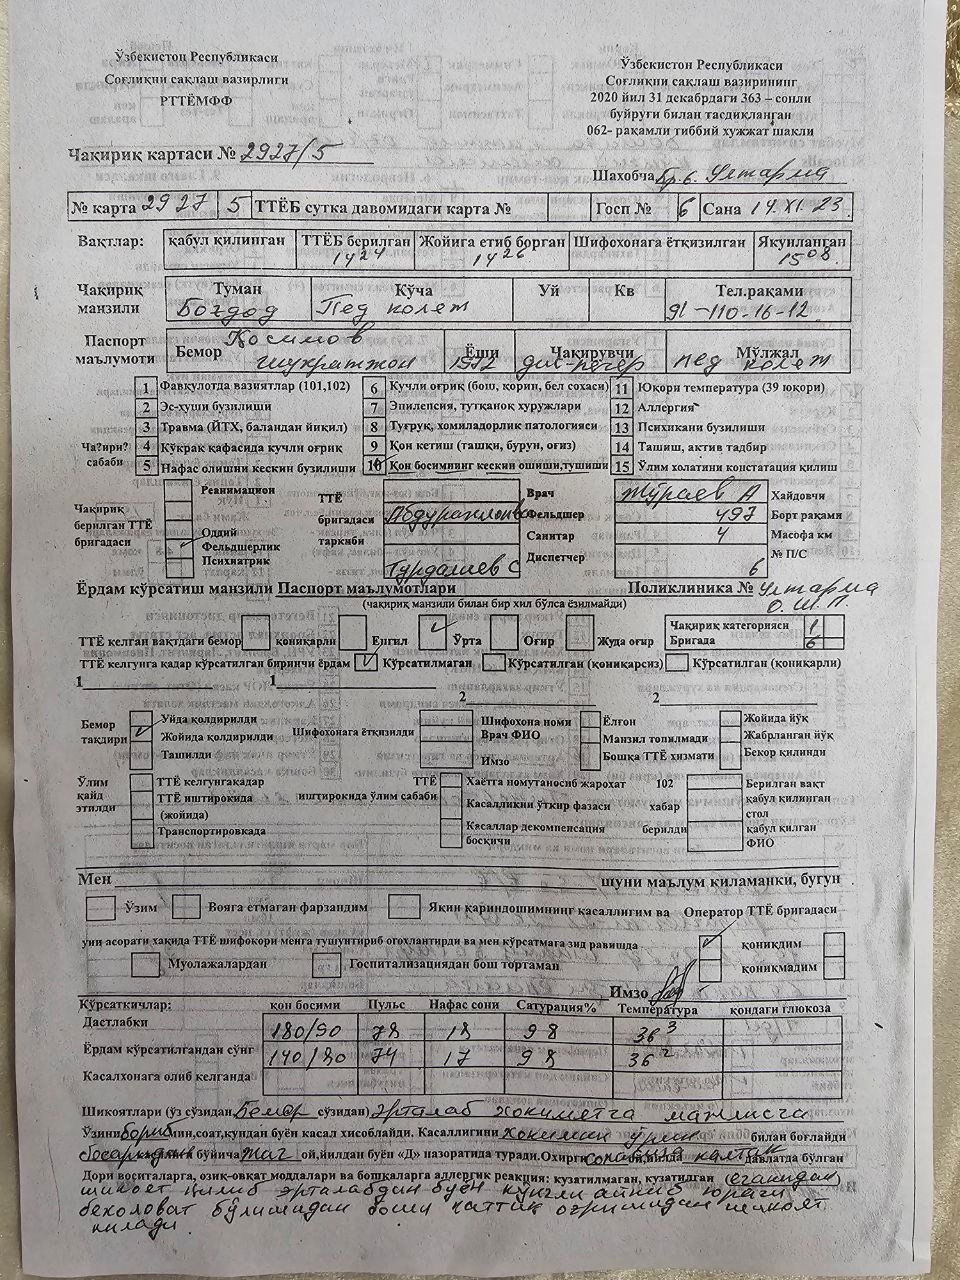 Ўзбекистон Республикаси
Соғлиқни сақлаш вазирлиги
РТТЁМФФ
Ўзбекистон Республикаси
Соғлиқни сақлаш вазирининг
2020 йил 31 декабрдаги 363 – сонли
буйруғи билан тасдиқланған
062- рақамли тиббий хужжат шакли
Чақириқ картаси № 2927/5
Шахобча бр.6. Ултарма
№ карта 2927 5 ТТЁБ сутка давомидаги карта № Госп № 6 Сана 14.XI.23.
Вақтлар: қабул қилинган ТТЁБ берилган Жойига етиб борган Шифохонага ётқизилган Якунланган
14 24 14 26 15 08.
Чақириқ манзили Туман Кўча Уй Кв Тел.рақами
Боғдод Пед колеж 91-110-16-12.
Паспорт маълумоти Бемор Қосимов Ёши Чақирувчи Мўлжал
Шухратжон 1972 дис-печер пед колеж
1 Фавқулотда вазиятлар (101,102) 6 Кучли оғриқ (бош, қорин, бел сохаси) 11 Юқори температура (39 юқори)
2 Эс-хуши бузилиши 7 Эпилепсия, тутқаноқ хуружлари 12 Аллергия
3 Травма (ЙТХ, баландан йиқил) 8 Туғруқ, хомиладорлик патологияси 13 Психикани бузилиши
Ча?ири? 4 Кўкрак қафасида кучли оғриқ 9 Қон кетиш (ташқи, бурун, оғиз) 14 Ташиш, актив тадбир
сабаби 5 Нафас олишни кескин бузилиши 10 Қон босимининг кескин ошиши,тушиши 15 Ўлим холатини констатация қилиш
Чақириқ берилган ТТЁ бригадаси
Реанимацион
Оддий
Фельдшерлик
Психиатрик
ТТЁ бригадаси таркиби
Врач
Фельдшер
Санитар
Диспетчер Турдалиев С
Жўраев А Хайдовчи
497 Борт рақами
4 Масофа км
6 № П/С
Ёрдам кўрсатиш манзили Паспорт маълумотлари Поликлиника № Ултарма
О.Ш.П.
(чақириқ манзили билан бир хил бўлса ёзилмайди)
ТТЁ келган вақтдаги бемор қониқарли Енгил Ўрта Оғир Жуда оғир
Чақириқ категорияси 1
Бригада 6
ТТЁ келгунга қадар кўрсатилган биринчи ёрдам Кўрсатилмаган Кўрсатилган (қониқарсиз) Кўрсатилган (қониқарли)
1 1 2 2
Бемор тақдири
Уйда қолдирилди
Жойида қолдирилди
Ташилди
Шифохонага ётқизилди
Шифохона номи
Врач ФИО
Имзо
Ёлғон
Манзил топилмади
Бошқа ТТЁ хизмати
Жойида йўқ
Жабрланган йўқ
Бекор қилинди
Ўлим қайд этилди
ТТЁ келгунгақадар
ТТЁ иштирокида
(жойида)
Транспортировкада
ТТЁ
иштирокида ўлим сабаби
Хаётга номутаносиб жарохат
Касалликни ўткир фазаси
Касаллар декомпенсация
босқичи
102
хабар
берилди
Берилган вақт
қабул қилинган
стол
қабул қилган
ФИО
Мен шуни маълум қиламанки, бугун
Ўзим Вояга етмаган фарзандим Яқин қариндошимнинг касаллигим ва Оператор ТТЁ бригадаси
уни асорати хақида ТТЁ шифокори менга тушунтириб огохлантирди ва мен кўрсатмага зид равишда қониқдим
Муолажалардан Госпитализациядан бош тортаман қониқмадим
Имзо
Кўрсаткичлар: қон босими Пульс Нафас сони Сатурация% Температура қондаги глюкоза
Дастлабки 180/90 78 18 98 36 3
Ёрдам кўрсатилгандан сўнг 140/80 74 17 98 36 2
Касалхонага олиб келганда
Шикоятлари (ўз сўзидан, Бемор сўзидан) Эрталаб хокимятга мажлисга
Ўзини бориб мин,соат,кундан буён касал хисоблайди. Касаллигини хокимни ўрин билан боғлайди
босари бўйича ой,йилдан буён «Д» назоратида туради.Охирги ой,йилда давлатда бўлган
Дори воситаларга, озиқ-овқат моддалари ва бошқаларга аллергик реакция: кузатилмаган, кузатилган (еганидан)
шикоят қилиб эрталабдан буён кўнгли айниб юраги
бехоловат бўлишидан боши каттик оғришидан шикоят
қилади